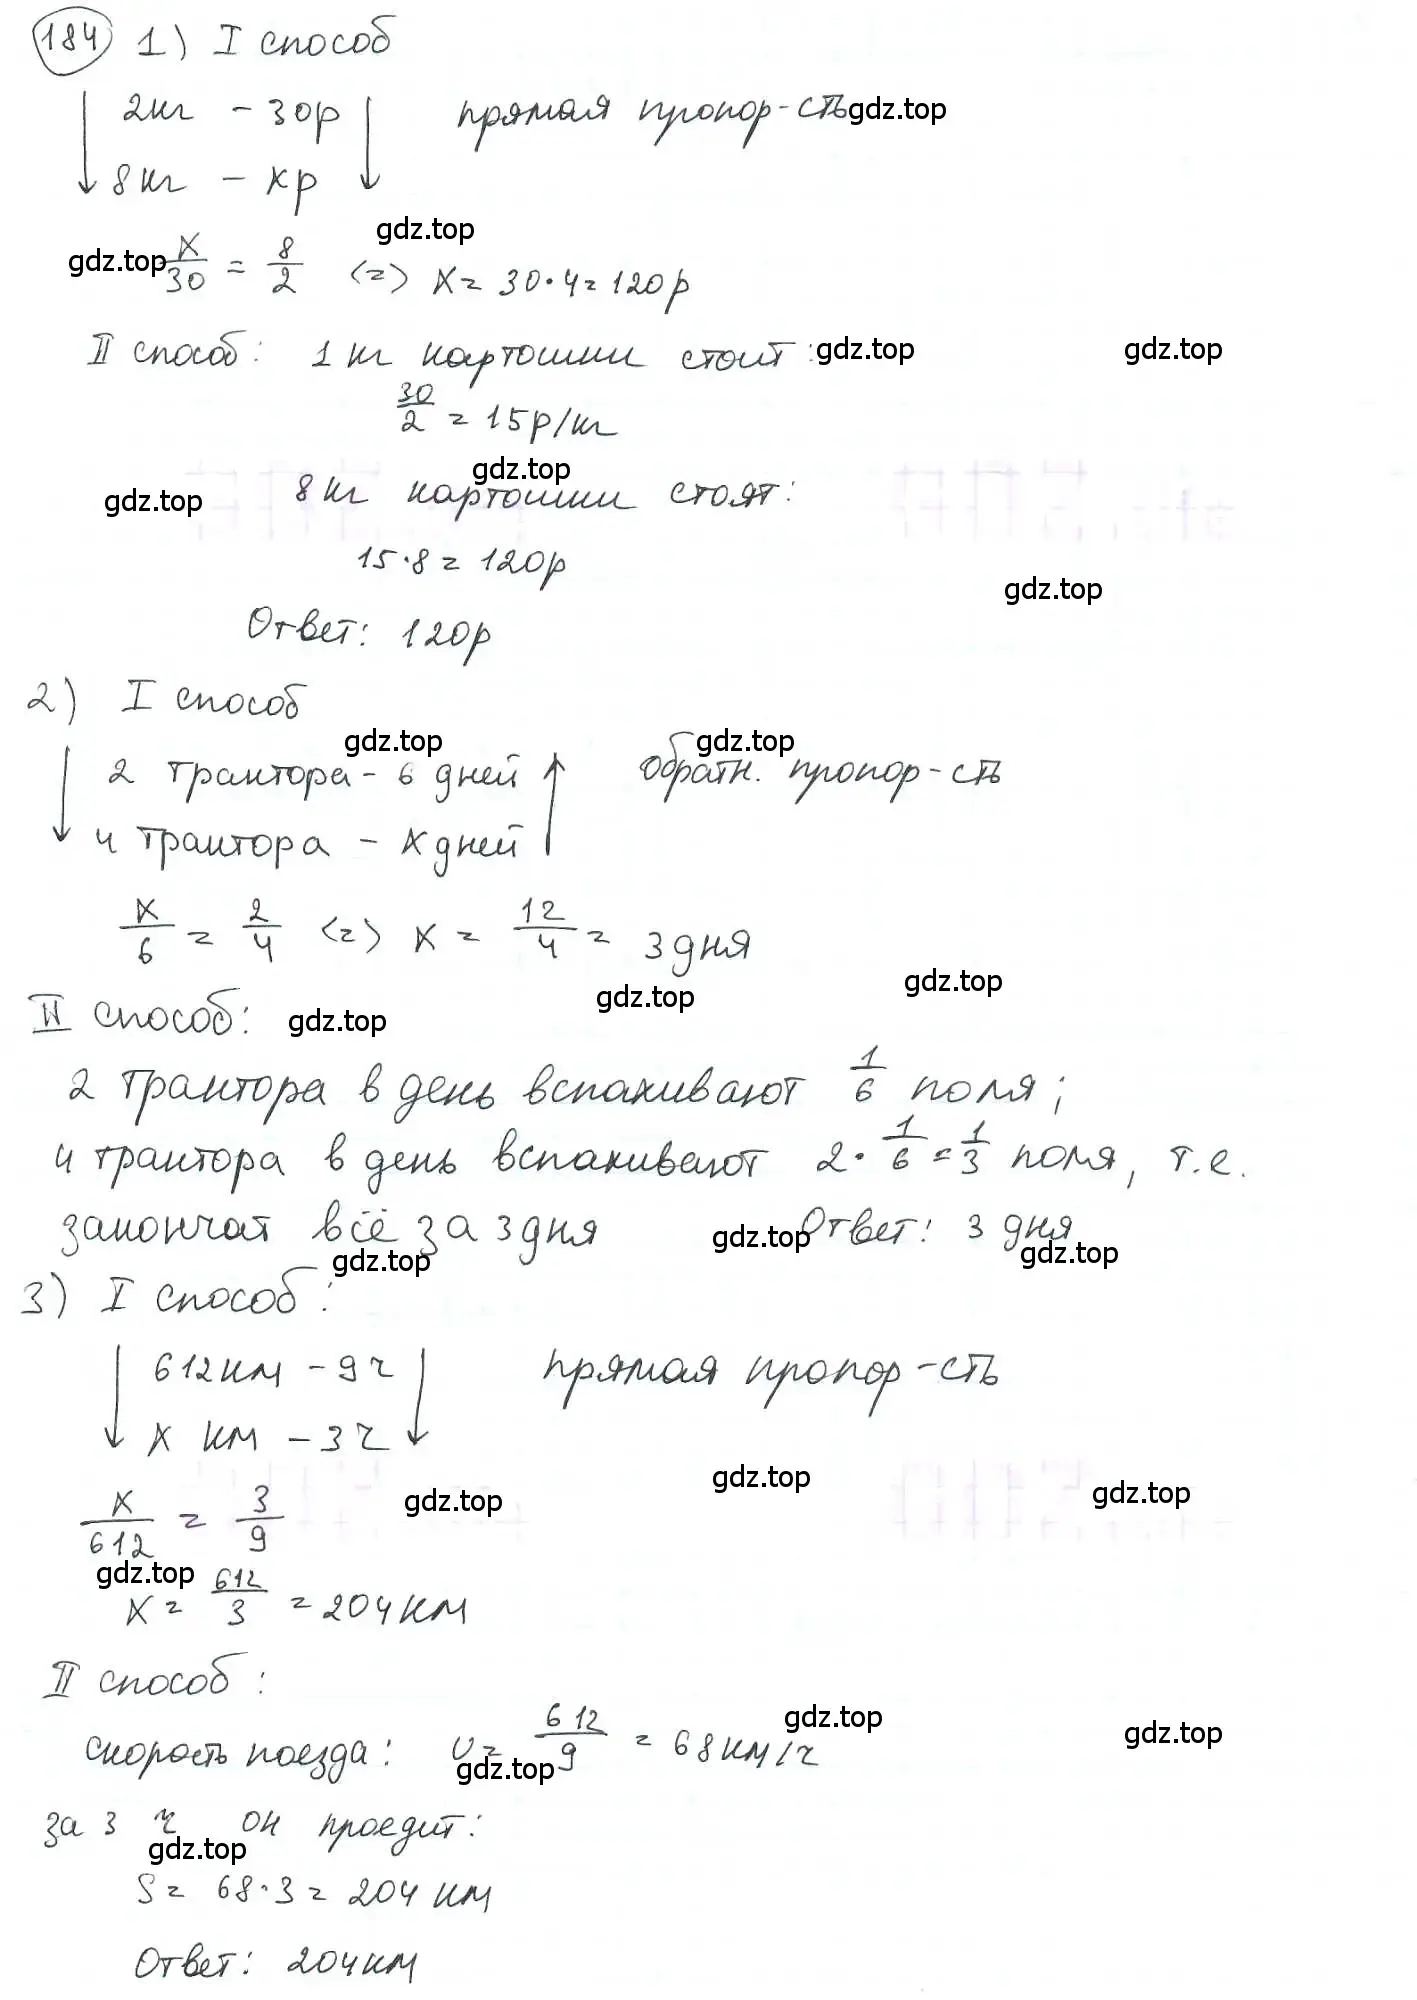 184 1) I способ
2кг - 30р прямая пропор-сть gdz.top
8кг - xр
gdz.top
gdz.top x/30 = 8/2 <=> x = 30·4 = 120р
II способ: 1 кг картошки стоит: gdz.top gdz.top
30/2 = 15р/кг
gdz.top
gdz.top 8 кг картошки стоят:
15·8 = 120р
gdz.top
Ответ: 120р
2) I способ
gdz.top gdz.top
2 трактора - 6 дней обратн. пропор-сть
4 трактора - x дней
x/6 = 2/4 <=> x = 12/4 = 3 дня
gdz.top gdz.top
II способ: gdz.top
2 трактора в день вспахивают 1/6 поля;
4 трактора в день вспахивают 2·1/6 = 1/3 поля, т.е.
закончат всё за 3 дня gdz.top Ответ: 3 дня
gdz.top gdz.top
3) I способ:
612км - 9ч прямая пропор-сть
x км - 3ч
gdz.top gdz.top gdz.top
x/612 = 3/9
gdz.top
x = 612/3 = 204км
II способ:
gdz.top gdz.top
скорость поезда: v = 612/9 = 68км/ч
gdz.top
за 3 ч он проедит:
gdz.top
S = 68·3 = 204 км
Ответ: 204км